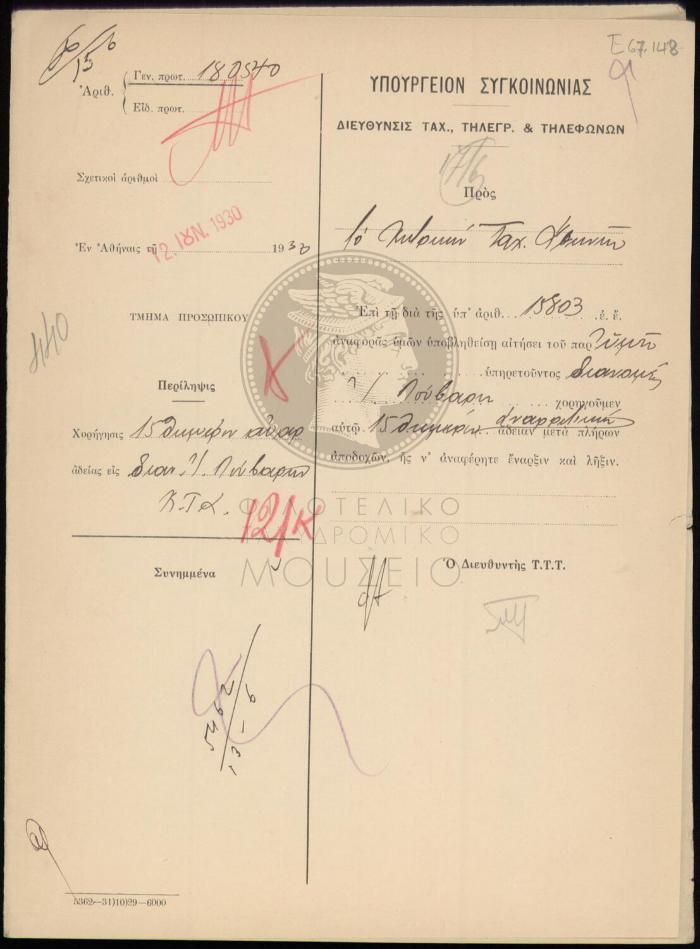 6/13 6
Ε67.148
Ἀριθ. Γεν. πρωτ. 180540
Εἰδ. πρωτ.
Σχετικοὶ ἀριθμοὶ
Ἐν Ἀθήναις τῇ 12. ΙΟΥΝ. 1930 1930
440
ΤΜΗΜΑ ΠΡΟΣΩΠΙΚΟΥ
Περίληψις
Χορήγησις 15θημέρου
ἀδείας εἰς διαν. Λούβαρην
Κ.Τ.Α.
12/Κ
Συνημμένα
5362—31)10)29—6000
ΥΠΟΥΡΓΕΙΟΝ ΣΥΓΚΟΙΝΩΝΙΑΣ
ΔΙΕΥΘΥΝΣΙΣ ΤΑΧ., ΤΗΛΕΓΡ. & ΤΗΛΕΦΩΝΩΝ
17/6
Πρὸς
Τὸ Κεντρικὸν Ταχ.
Ἐπὶ τῇ διὰ τῆς ὑπ' ἀριθ. 15803 ἐ. ἔ.
ἀναφορᾶς ὑμῶν ὑποβληθείσῃ αἰτήσει τοῦ παρ' ὑμῖν
ὑπηρετοῦντος διανομέως
Λούβαρη χορηγοῦμεν
αὐτῷ 15θήμερον ἀναρρωτικὴν ἄδειαν μετὰ πλήρων
ἀποδοχῶν, ἧς ν' ἀναφέρητε ἔναρξιν καὶ λῆξιν.
Ὁ Διευθυντὴς Τ.Τ.Τ.
ΦΙΛΟΤΕΛΙΚΟ
ΤΑΧΥΔΡΟΜΙΚΟ
ΜΟΥΣΕΙΟ